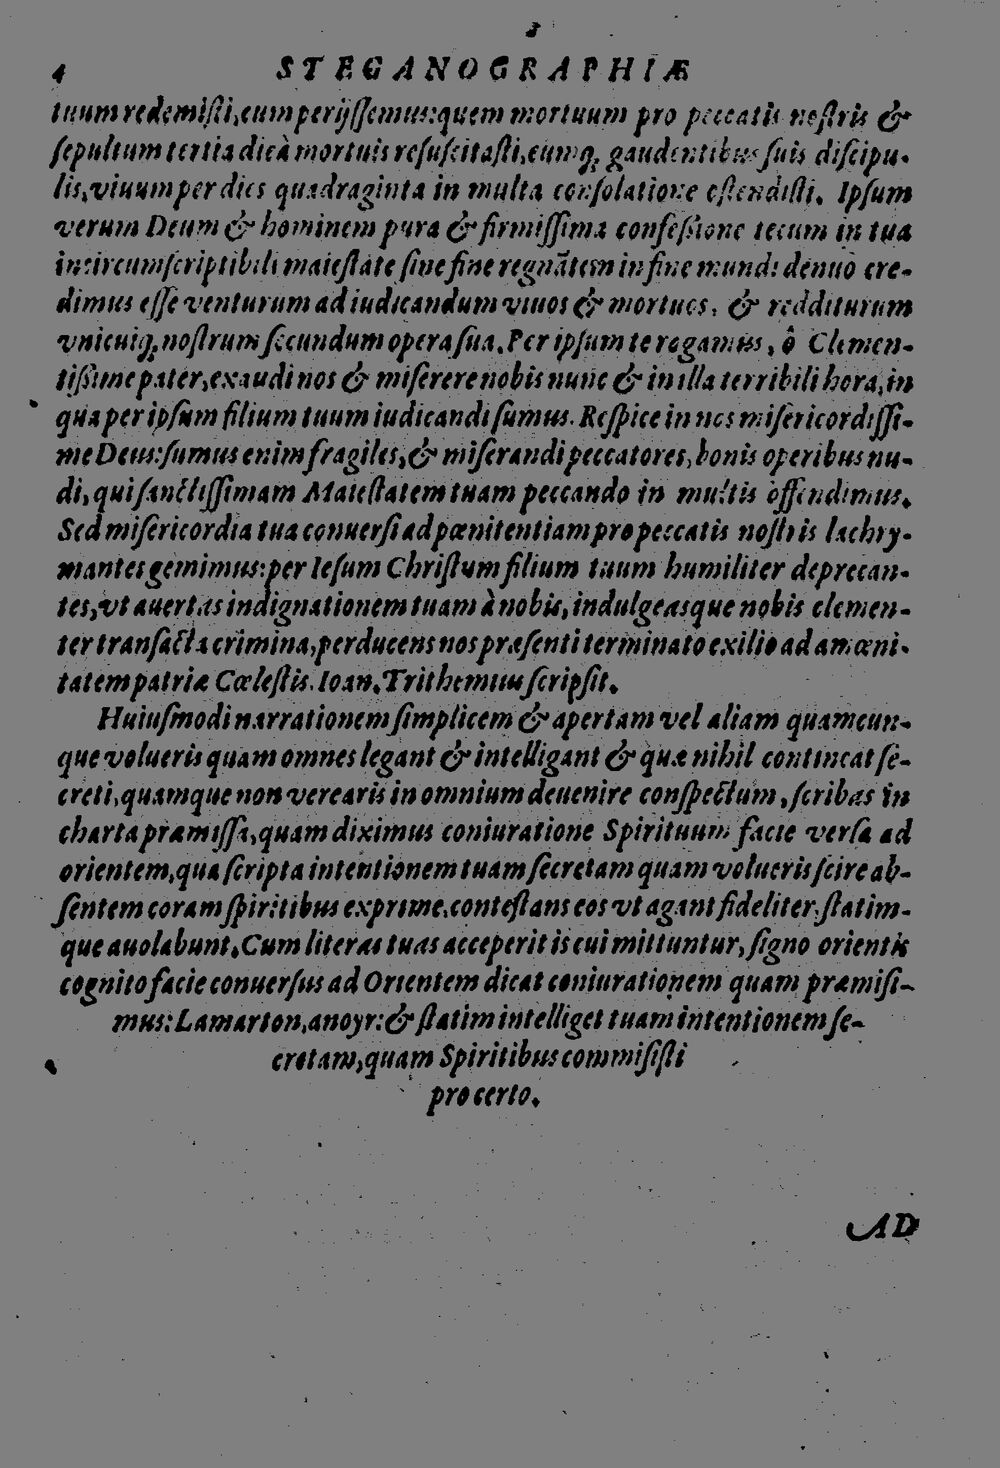 4 STEGANOGRAPHIÆ
tuum redemiſti, cum perijſſemus: quem mortuum pro peccatis noſtris &
ſepultum tertia die à mortuis reſuſcitaſti, eumq́; gaudentibus ſuis diſcipu-
lis, viuum per dies quadraginta in multa conſolatione oſtendiſti. Ipſum
verum Deum & hominem pura & firmiſſima confeſſione tecum in tua
incircumſcriptibili maieſtate ſine fine regnātem in fine mundi denuò cre-
dimus eſſe venturum ad iudicandum viuos & mortuos, & redditurum
vnicuiq; noſtrum ſecundum opera ſua. Per ipſum te rogamus, ô Clemen-
tiſſime pater, exaudi nos & miſerere nobis nunc & in illa terribili hora, in
qua per ipſum filium tuum iudicandi ſumus. Reſpice in nos miſericordiſſi-
me Deus: ſumus enim fragiles, & miſerandi peccatores, bonis operibus nu-
di, qui ſanctiſſimam Maieſtatem tuam peccando in multis offendimus.
Sed miſericordia tua conuerſi ad pœnitentiam pro peccatis noſtris lachry-
mantes gemimus: per Ieſum Chriſtum filium tuum humiliter deprecan-
tes, vt auertas indignationem tuam à nobis, indulgeasque nobis clemen-
ter tranſacta crimina, perducens nos præſenti terminato exilio ad amœni-
tatem patriæ Cœleſtis. Ioan. Trithemius ſcripſit.
Huiuſmodi narrationem ſimplicem & apertam vel aliam quamcun-
que volueris quam omnes legant & intelligant & quæ nihil contineat ſe-
creti, quamque non verearis in omnium deuenire conſpectum, ſcribas in
charta præmiſſa, quam diximus coniuratione Spirituum facie verſa ad
orientem, qua ſcripta intentionem tuam ſecretam quam volueris ſcire ab-
ſentem coram ſpiritibus exprime, conteſtans eos vt agant fideliter, ſtatim-
que auolabunt. Cum literas tuas acceperit is cui mittuntur, ſigno orientis
cognito facie conuerſus ad Orientem dicat coniurationem quam præmiſi-
mus: Lamarton, anoyr: & ſtatim intelliget tuam intentionem ſe-
cretam, quam Spiritibus commiſiſti
pro certo.
AD